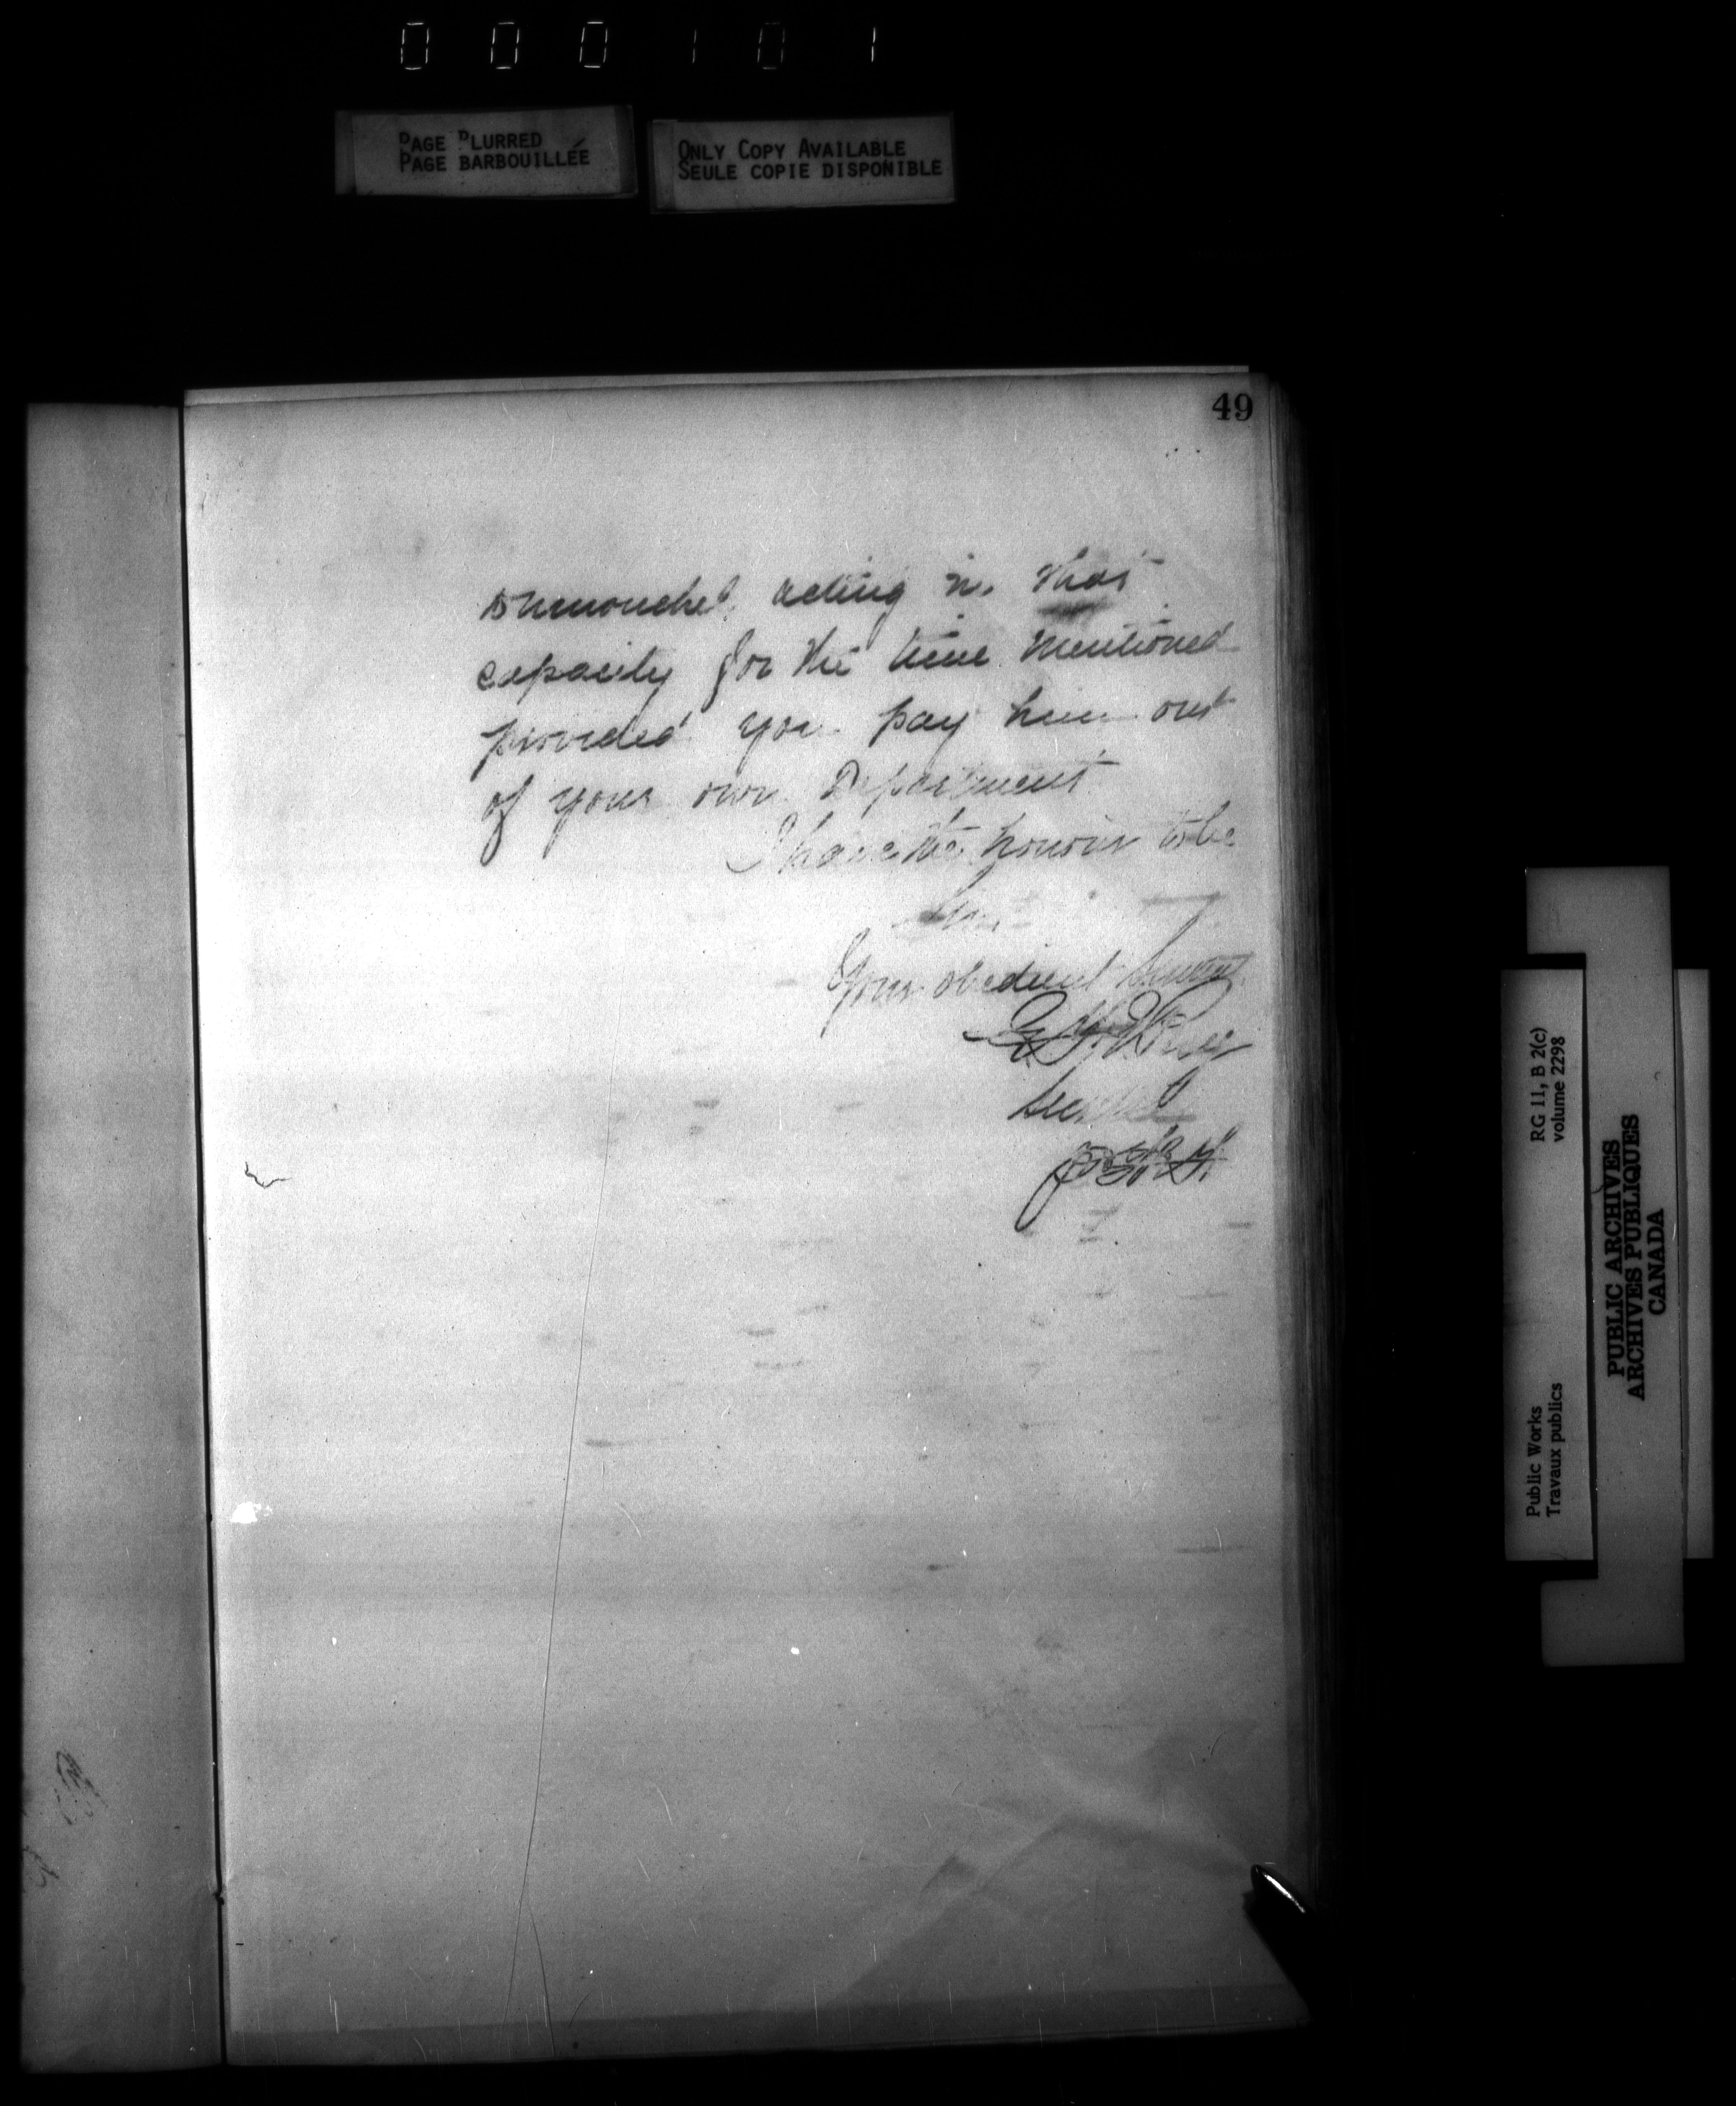 000101
PAGE BLURRED
PAGE BARBOUILLÉE
ONLY COPY AVAILABLE
SEULE COPIE DISPONIBLE
49
acting in that
capacity for the time mentioned
provided you pay him out
of your own Department
I have the honour to be
Sir
Your obedient Servant
RG 11, B 2(c)
volume 2298
Public Works
Travaux publics
PUBLIC ARCHIVES
ARCHIVES PUBLIQUES
CANADA